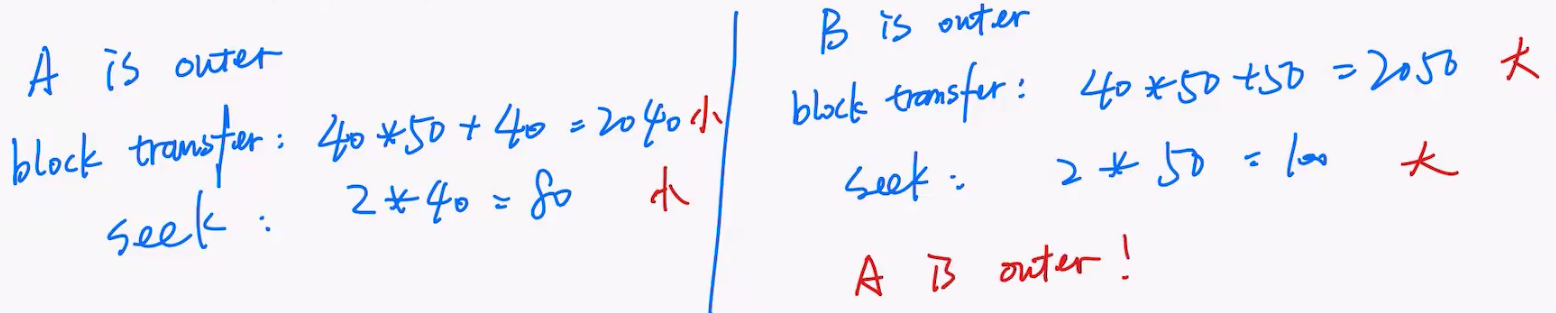 A is outer
block transfer: 40*50+40=2040 小
seek: 2*40=80 小
B is outer
block transfer: 40*50+50=2050 大
seek: 2*50=100 大
A is outer!